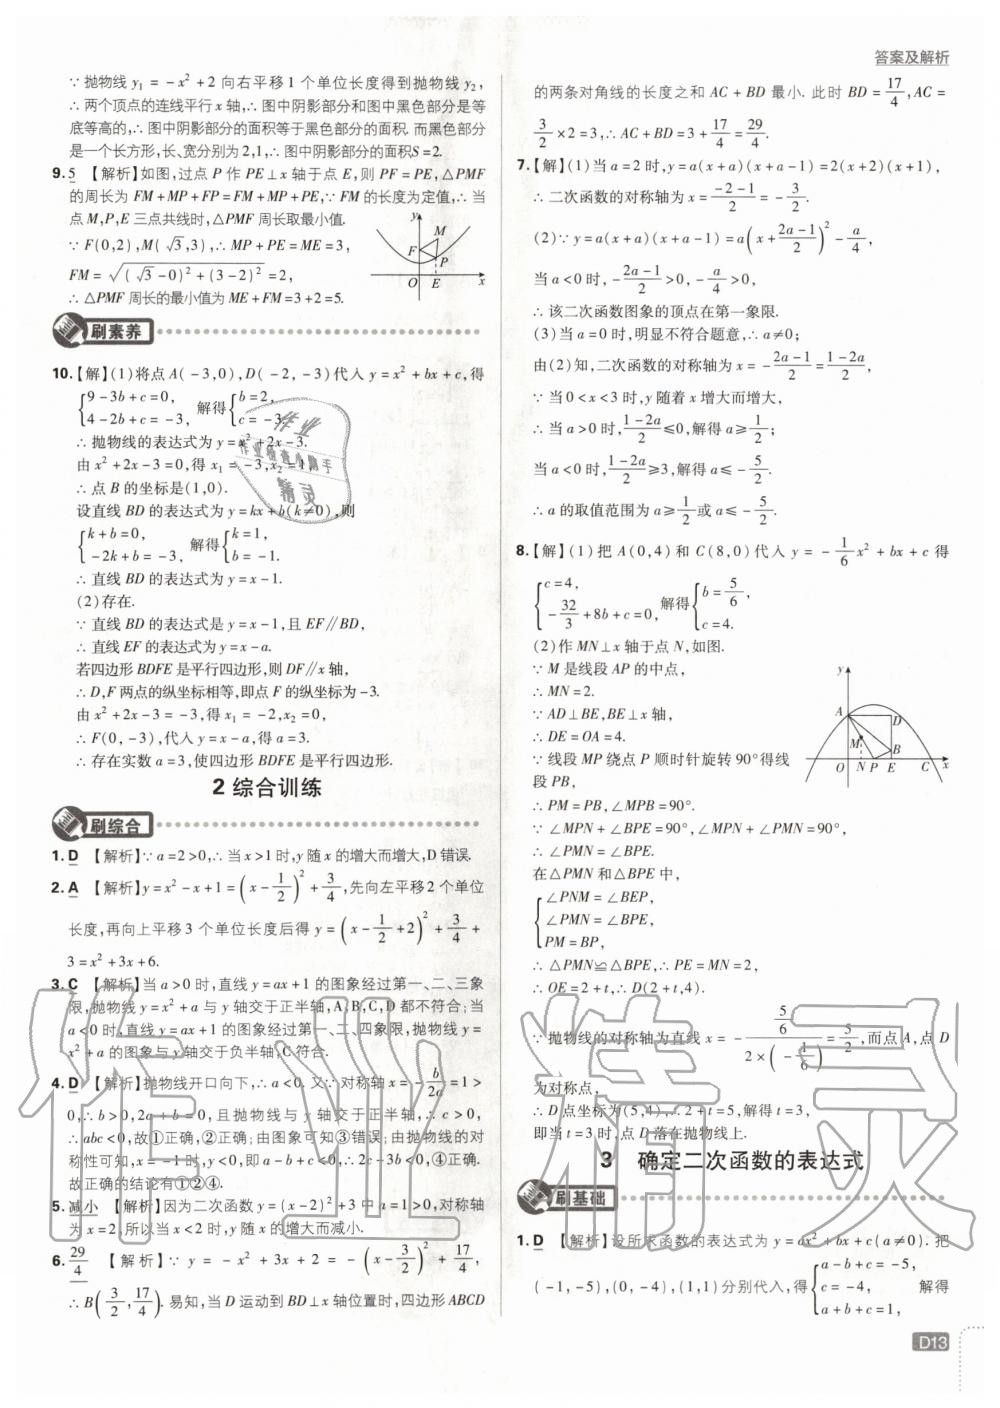 答案及解析
∵ 抛物线 y₁ = -x² + 2 向右平移 1 个单位长度得到抛物线 y₂,
∴ 两个顶点的连线平行 x 轴,∴ 图中阴影部分和图中黑色部分是等
底等高的,∴ 图中阴影部分的面积等于黑色部分的面积. 而黑色部分
是一个长方形,长、宽分别为 2,1,∴ 图中阴影部分的面积S = 2.
9. 5 【解析】如图,过点 P 作 PE⊥x 轴于点 E,则 PF = PE,△PMF
的周长为 FM + MP + FP = FM + MP + PE,∵ FM 的长度为定值,∴ 当
点 M,P,E 三点共线时,△PMF 周长取最小值.
∵ F(0,2),M(√3,3),∴ MP + PE = ME = 3,
FM = √((√3 - 0)² + (3 - 2)²) = 2,
∴ △PMF 周长的最小值为 ME + FM = 3 + 2 = 5.
y M F P O E x
刷素养
10. 【解】(1)将点 A(-3,0),D(-2,-3)代入 y = x² + bx + c,得
{9 - 3b + c = 0, 4 - 2b + c = -3, 解得{b = 2, c = -3.
∴ 抛物线的表达式为 y = x² + 2x - 3.
由 x² + 2x - 3 = 0,得 x₁ = -3,x₂ = 1,
∴ 点 B 的坐标是(1,0).
设直线 BD 的表达式为 y = kx + b(k≠0),则
{k + b = 0, -2k + b = -3, 解得{k = 1, b = -1.
∴ 直线 BD 的表达式为 y = x - 1.
(2)存在.
∵ 直线 BD 的表达式是 y = x - 1,且 EF∥BD,
∴ 直线 EF 的表达式为 y = x - a.
若四边形 BDFE 是平行四边形,则 DF∥x 轴,
∴ D,F 两点的纵坐标相等,即点 F 的纵坐标为 -3.
由 x² + 2x - 3 = -3,得 x₁ = -2,x₂ = 0,
∴ F(0,-3),代入 y = x - a,得 a = 3.
∴ 存在实数 a = 3,使四边形 BDFE 是平行四边形.
2 综合训练
刷综合
1. D 【解析】∵ a = 2 > 0,∴ 当 x > 1 时,y 随 x 的增大而增大,D 错误.
2. A 【解析】y = x² - x + 1 = (x - 1/2)² + 3/4,先向左平移 2 个单位
长度,再向上平移 3 个单位长度后得 y = (x - 1/2 + 2)² + 3/4 +
3 = x² + 3x + 6.
3. C 【解析】当 a > 0 时,直线 y = ax + 1 的图象经过第一、二、三象
限,抛物线 y = x² + a 与 y 轴交于正半轴,A,B,C,D 都不符合;当
a < 0 时,直线 y = ax + 1 的图象经过第一、二、四象限,抛物线 y =
x² + a 的图象与 y 轴交于负半轴,C 符合.
4. D 【解析】抛物线开口向下,∴ a < 0. 又∵ 对称轴 x = -b/2a = 1 >
0,∴ b > 0,2a + b = 0,且抛物线与 y 轴交于正半轴,∴ c > 0,
∴ abc < 0,故①正确,②正确;由图象可知③错误;由抛物线的对
称性可知,x = -1 时,y < 0,即 a - b + c < 0,④正确.
故正确的结论有①②④.
5. 减小 【解析】因为二次函数 y = (x - 2)² + 3 中 a = 1 > 0,对称轴
为 x = 2,所以当 x < 2 时,y 随 x 的增大而减小.
6. 29/4 【解析】∵ y = -x² + 3x + 2 = -(x - 3/2)² + 17/4,
∴ B(3/2,17/4). 易知,当 D 运动到 BD⊥x 轴位置时,四边形 ABCD
的两条对角线的长度之和 AC + BD 最小. 此时 BD = 17/4,AC =
3/2 × 2 = 3,∴ AC + BD = 3 + 17/4 = 29/4.
7. 【解】(1)当 a = 2 时,y = a(x + a)(x + a - 1) = 2(x + 2)(x + 1),
∴ 二次函数的对称轴为 x = (-2 - 1)/2 = -3/2.
(2)∵ y = a(x + a)(x + a - 1) = a(x + (2a - 1)/2)² - a/4,
当 a < 0 时,-(2a - 1)/2 > 0,-a/4 > 0,
∴ 该二次函数图象的顶点在第一象限.
(3)当 a = 0 时,明显不符合题意,∴ a≠0;
由(2)知,二次函数的对称轴为 x = -(2a - 1)/2 = (1 - 2a)/2.
∵ 当 0 < x < 3 时,y 随着 x 增大而增大,
∴ 当 a > 0 时,(1 - 2a)/2 ≤ 0,解得 a ≥ 1/2;
当 a < 0 时,(1 - 2a)/2 ≥ 3,解得 a ≤ -5/2.
∴ a 的取值范围为 a ≥ 1/2 或 a ≤ -5/2.
8. 【解】(1)把 A(0,4)和 C(8,0)代入 y = -1/6x² + bx + c 得
{c = 4, -32/3 + 8b + c = 0, 解得{b = 5/6, c = 4.
(2)作 MN⊥x 轴于点 N,如图.
∵ M 是线段 AP 的中点,
∴ MN = 2.
∵ AD⊥BE,BE⊥x 轴,
∴ DE = OA = 4.
∵ 线段 MP 绕点 P 顺时针旋转 90°得线
段 PB,
y A D M B O N P E C x
∴ PM = PB,∠MPB = 90°.
∵ ∠MPN + ∠BPE = 90°,∠MPN + ∠PMN = 90°,
∴ ∠PMN = ∠BPE.
在△PMN 和△BPE 中,
{∠PNM = ∠BEP,
∠PMN = ∠BPE,
PM = BP,
∴ △PMN≌△BPE,∴ PE = MN = 2,
∴ OE = 2 + t,∴ D(2 + t,4).
∵ 抛物线的对称轴为直线 x = -(5/6)/(2 × (-1/6)) = 5/2,而点 A,点 D
为对称点,
∴ D 点坐标为(5,4),∴ 2 + t = 5,解得 t = 3,
即当 t = 3 时,点 D 落在抛物线上.
3 确定二次函数的表达式
刷基础
1. D 【解析】设所求函数的表达式为 y = ax² + bx + c(a≠0). 把
(-1,-5),(0,-4),(1,1)分别代入,得{a - b + c = -5, c = -4, a + b + c = 1, 解得
D13
作业精灵
作业
作业检查小助手
精灵